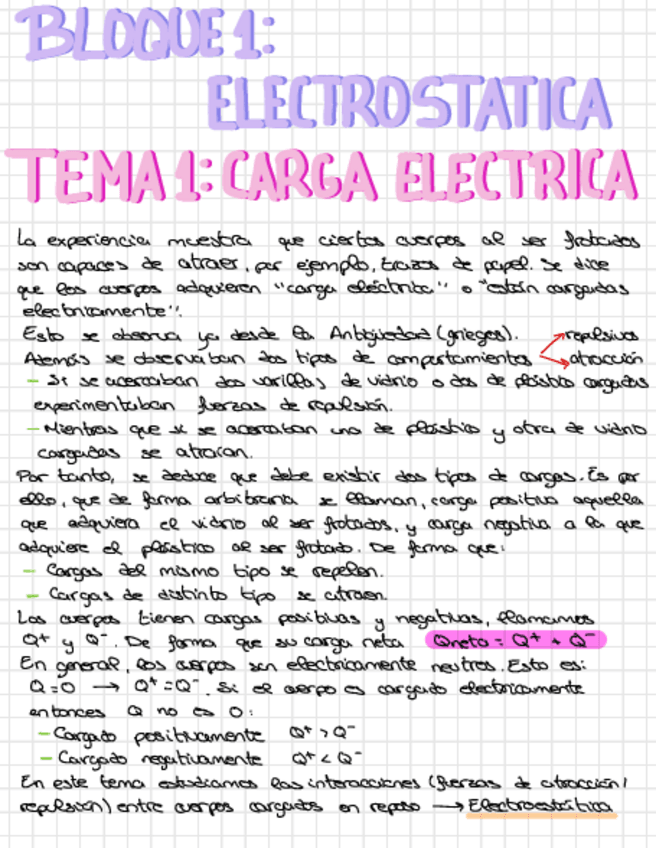 BLOQUE 1:
ELECTROSTATICA
TEMA 1: CARGA ELECTRICA
La experiencia muestra que ciertos cuerpos al ser frotados
son capaces de atraer, por ejemplo, trozos de papel. Se dice
que los cuerpos adquieren "carga eléctrica" o "están cargados
electricamente".
Esto se observa ya desde la Antigüedad (griegos). repulsivos
Además se observaban dos tipos de comportamientos atracción
- Si se acercaban dos varillas de vidrio o dos de plástico cargadas
experimentaban fuerzas de repulsión.
- Mientras que si se acercaban una de plástico y otra de vidrio
cargadas se atraían.
Por tanto, se deduce que debe existir dos tipos de cargas. Es por
ello, que de forma arbitraria se llaman, carga positiva aquella
que adquiera el vidrio al ser frotados, y carga negativa a la que
adquiere el plástico al ser frotado. De forma que:
- Cargas del mismo tipo se repelen.
- Cargas de distinto tipo se atraen.
Los cuerpos tienen cargas positivas y negativas, llamamos
Q⁺ y Q⁻. De forma que su carga neta Qneto = Q⁺ + Q⁻
En general, los cuerpos son electricamente neutros. Esto es:
Q=0 → Q⁺=Q⁻. Si el cuerpo es cargado electricamente
entonces Q no es 0:
- Cargado positivamente Q⁺ > Q⁻
- Cargado negativamente Q⁺ < Q⁻
En este tema estudiamos las interacciones (fuerzas de atracción/
repulsión) entre cuerpos cargados en reposo → Electroestática